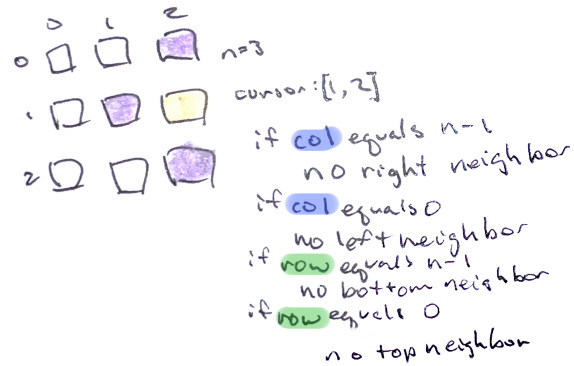 0 1 2
0
n=3
1
cursor:[1,2]
if col equals n-1
no right neighbor
2
if col equals 0
no left neighbor
if row equals n-1
no bottom neighbor
if row equals 0
no top neighbor